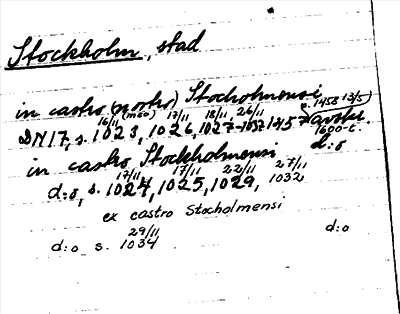 Stockholm, stad
in castro (nostro) Stocholmensi
16/11 (mso) 17/11 18/11, 26/11 1458 13/5
DN 17, s. 1023, 1026, 1027-1032 1457 avskr.
1600-t.
in castro Stockholmensi d:o
17/11 17/11 22/11 27/11
d:o, s. 1024, 1025, 1029, 1032
ex castro Stocholmensi
29/11
d:o s. 1034 d:o